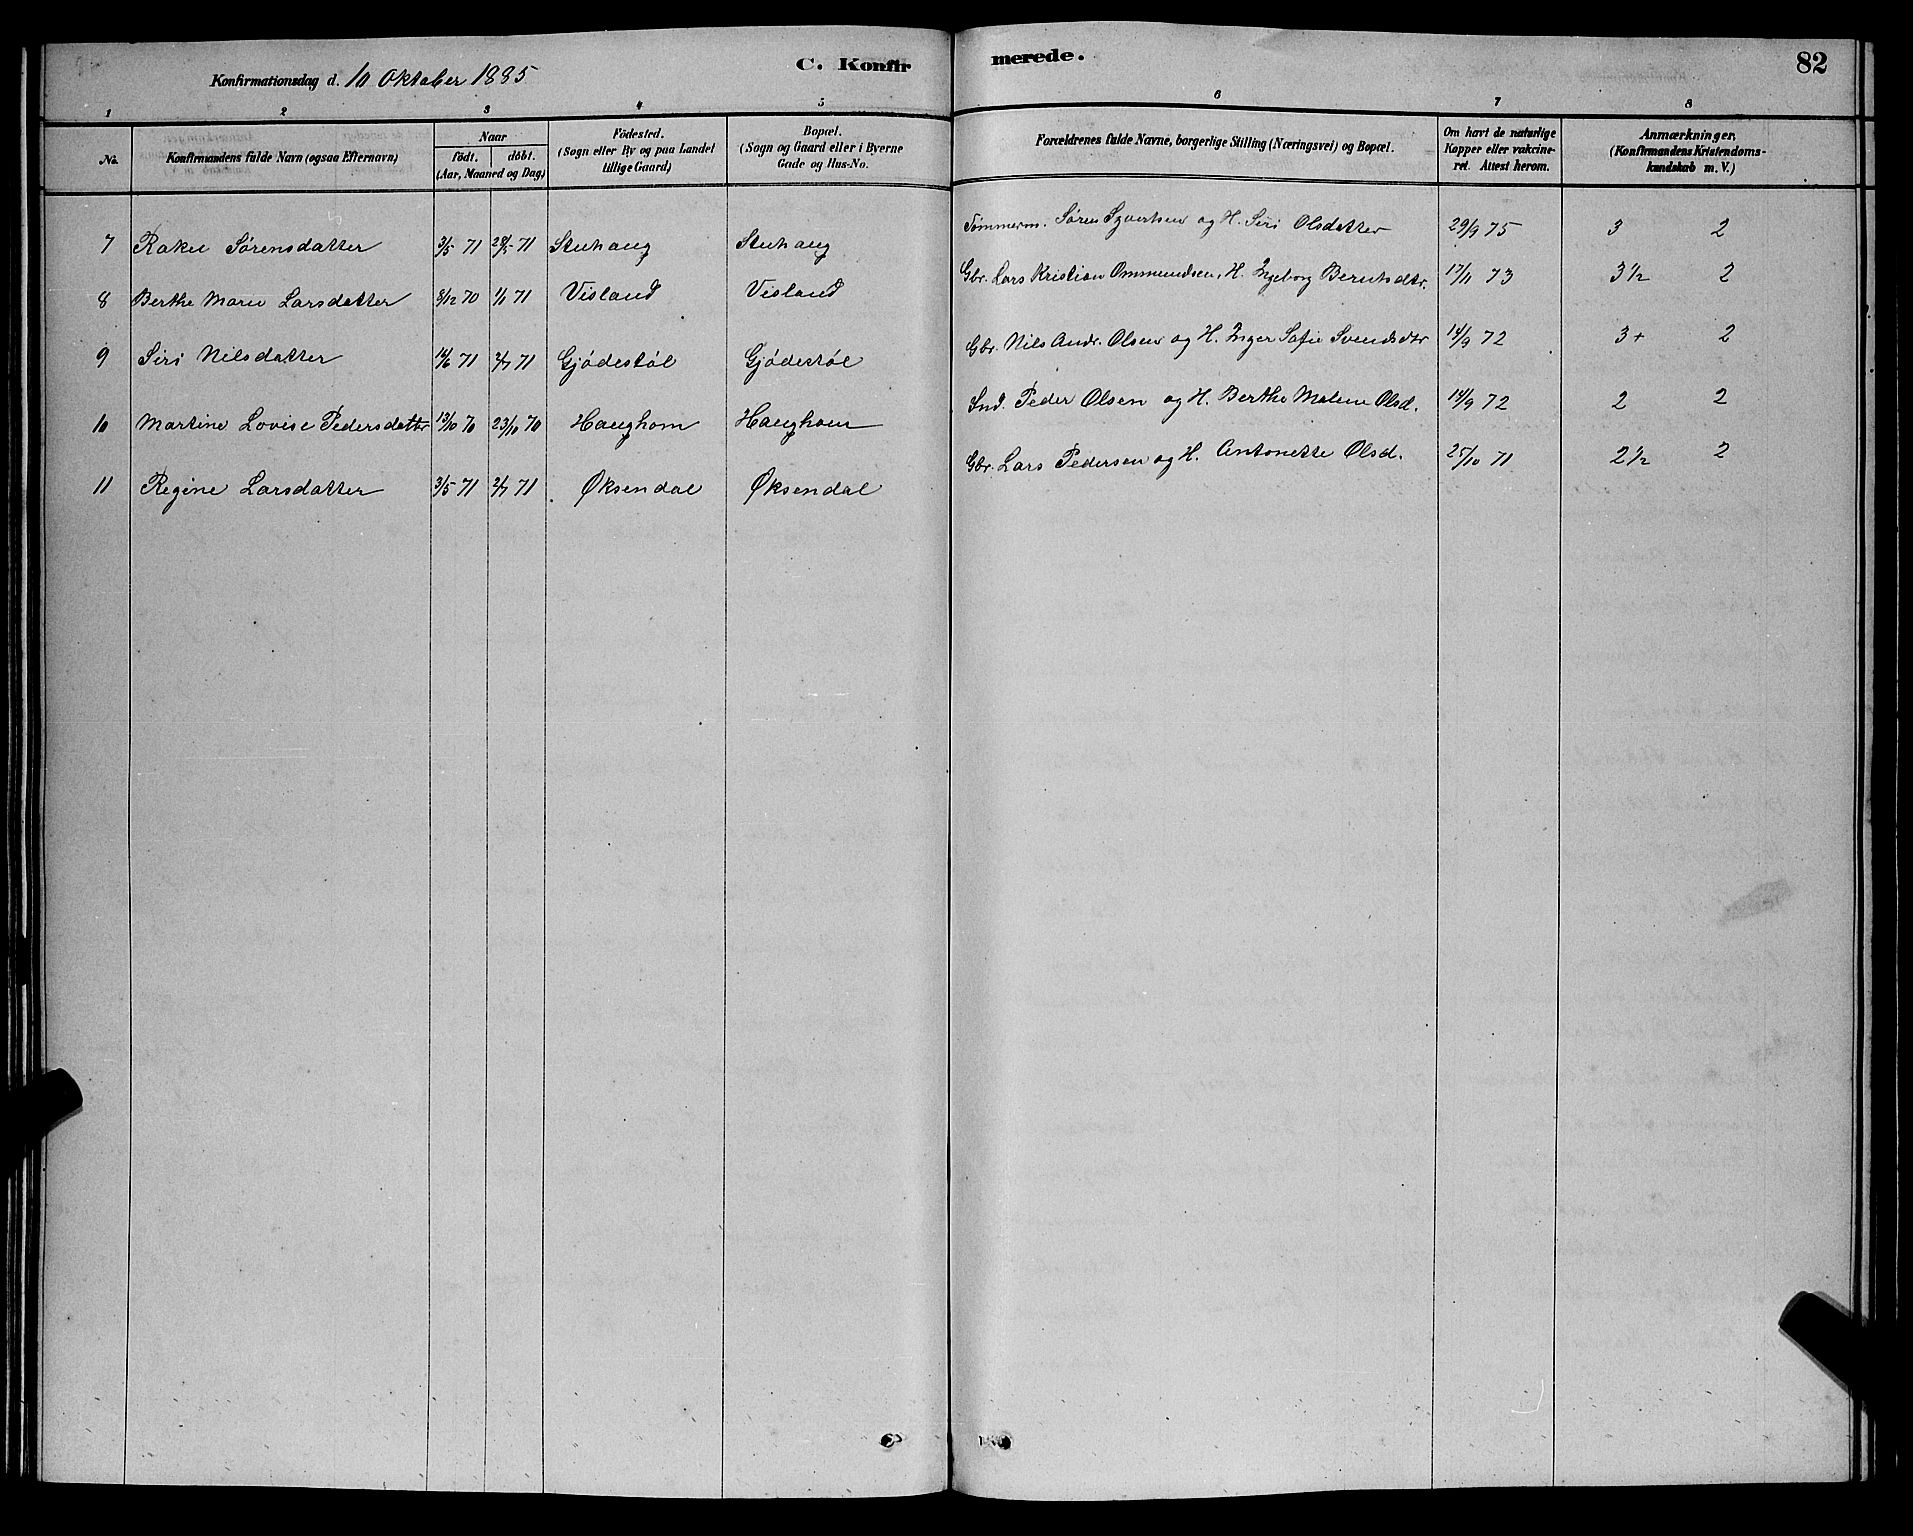 C. Konfirmerede.
82
Konfirmationsdag d. 10 Oktober 1885
1 2 3 4 5 6 7 8
No. Konfirmandens fulde Navn (ogsaa Efternavn) Naar födt. döbt. (Aar, Maaned og Dag) Födested. (Sogn eller By og paa Landet tillige Gaard) Bopæl. (Sogn og Gaard eller i Byerne Gade og Hus-No. Forældrenes fulde Navne, borgerlige Stilling (Næringsvei) og Bopæl. Om havt de naturlige Kopper eller vakcineret. Attest herom. Anmærkninger. (Konfirmandens Kristendomskundskab m. V.)
7 Rakel Sørensdatter 3/5 71 28/5 71 Stuhaug Stuhaug Tömmerm. Søren Syvertsen og H. Siri Olsdatter 29/9 75 3 2
8 Berthe Marie Larsdatter 8/12 70 1/1 71 Visland Visland Gbr. Lars Kristian Ommundsen, H. Ingeborg Berntsdtr. 17/11 73 3 1/2 2
9 Siri Nilsdatter 14/6 71 2/7 71 Gjödestöl Gjödestöl Gbr. Nils Andr. Olsen og H. Inger Sofie Svendsdtr 14/9 72 3+ 2
10 Martine Lovise Pedersdatter 13/10 70 23/10 70 Haughom Haughom Ind. Peder Olsen og H. Berthe Malene Olsd. 14/9 72 2 2
11 Regine Larsdatter 3/5 71 2/7 71 Øksendal Øksendal Gbr. Lars Pedersen og H. Antonette Olsd. 25/10 71 2 1/2 2